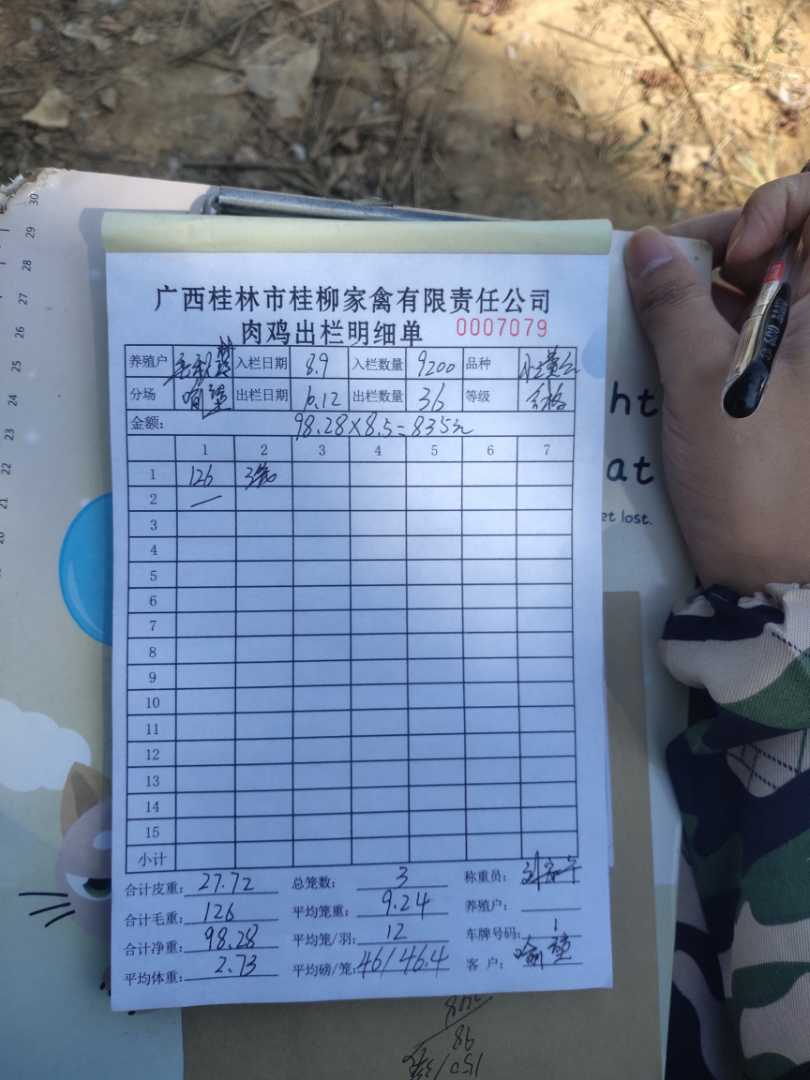 广西桂林市桂柳家禽有限责任公司
肉鸡出栏明细单 0007079
养殖户 入栏日期 8.9 入栏数量 9200 品种
分场 出栏日期 10.12 出栏数量 36 等级 合格
金额: 98.28×8.5=835元
1 2 3 4 5 6 7
1 126 3笼
2 —
3
4
5
6
7
8
9
10
11
12
13
14
15
小计
合计皮重: 27.72 总笼数: 3 称重员:
合计毛重: 126 平均笼重: 9.24 养殖户:
合计净重: 98.28 平均笼/羽: 12 车牌号码: 1
平均体重: 2.73 平均磅/笼: 46/46.4 客 户:
ht
at
et lost.
30
29
28
27
26
25
24
23
22
21